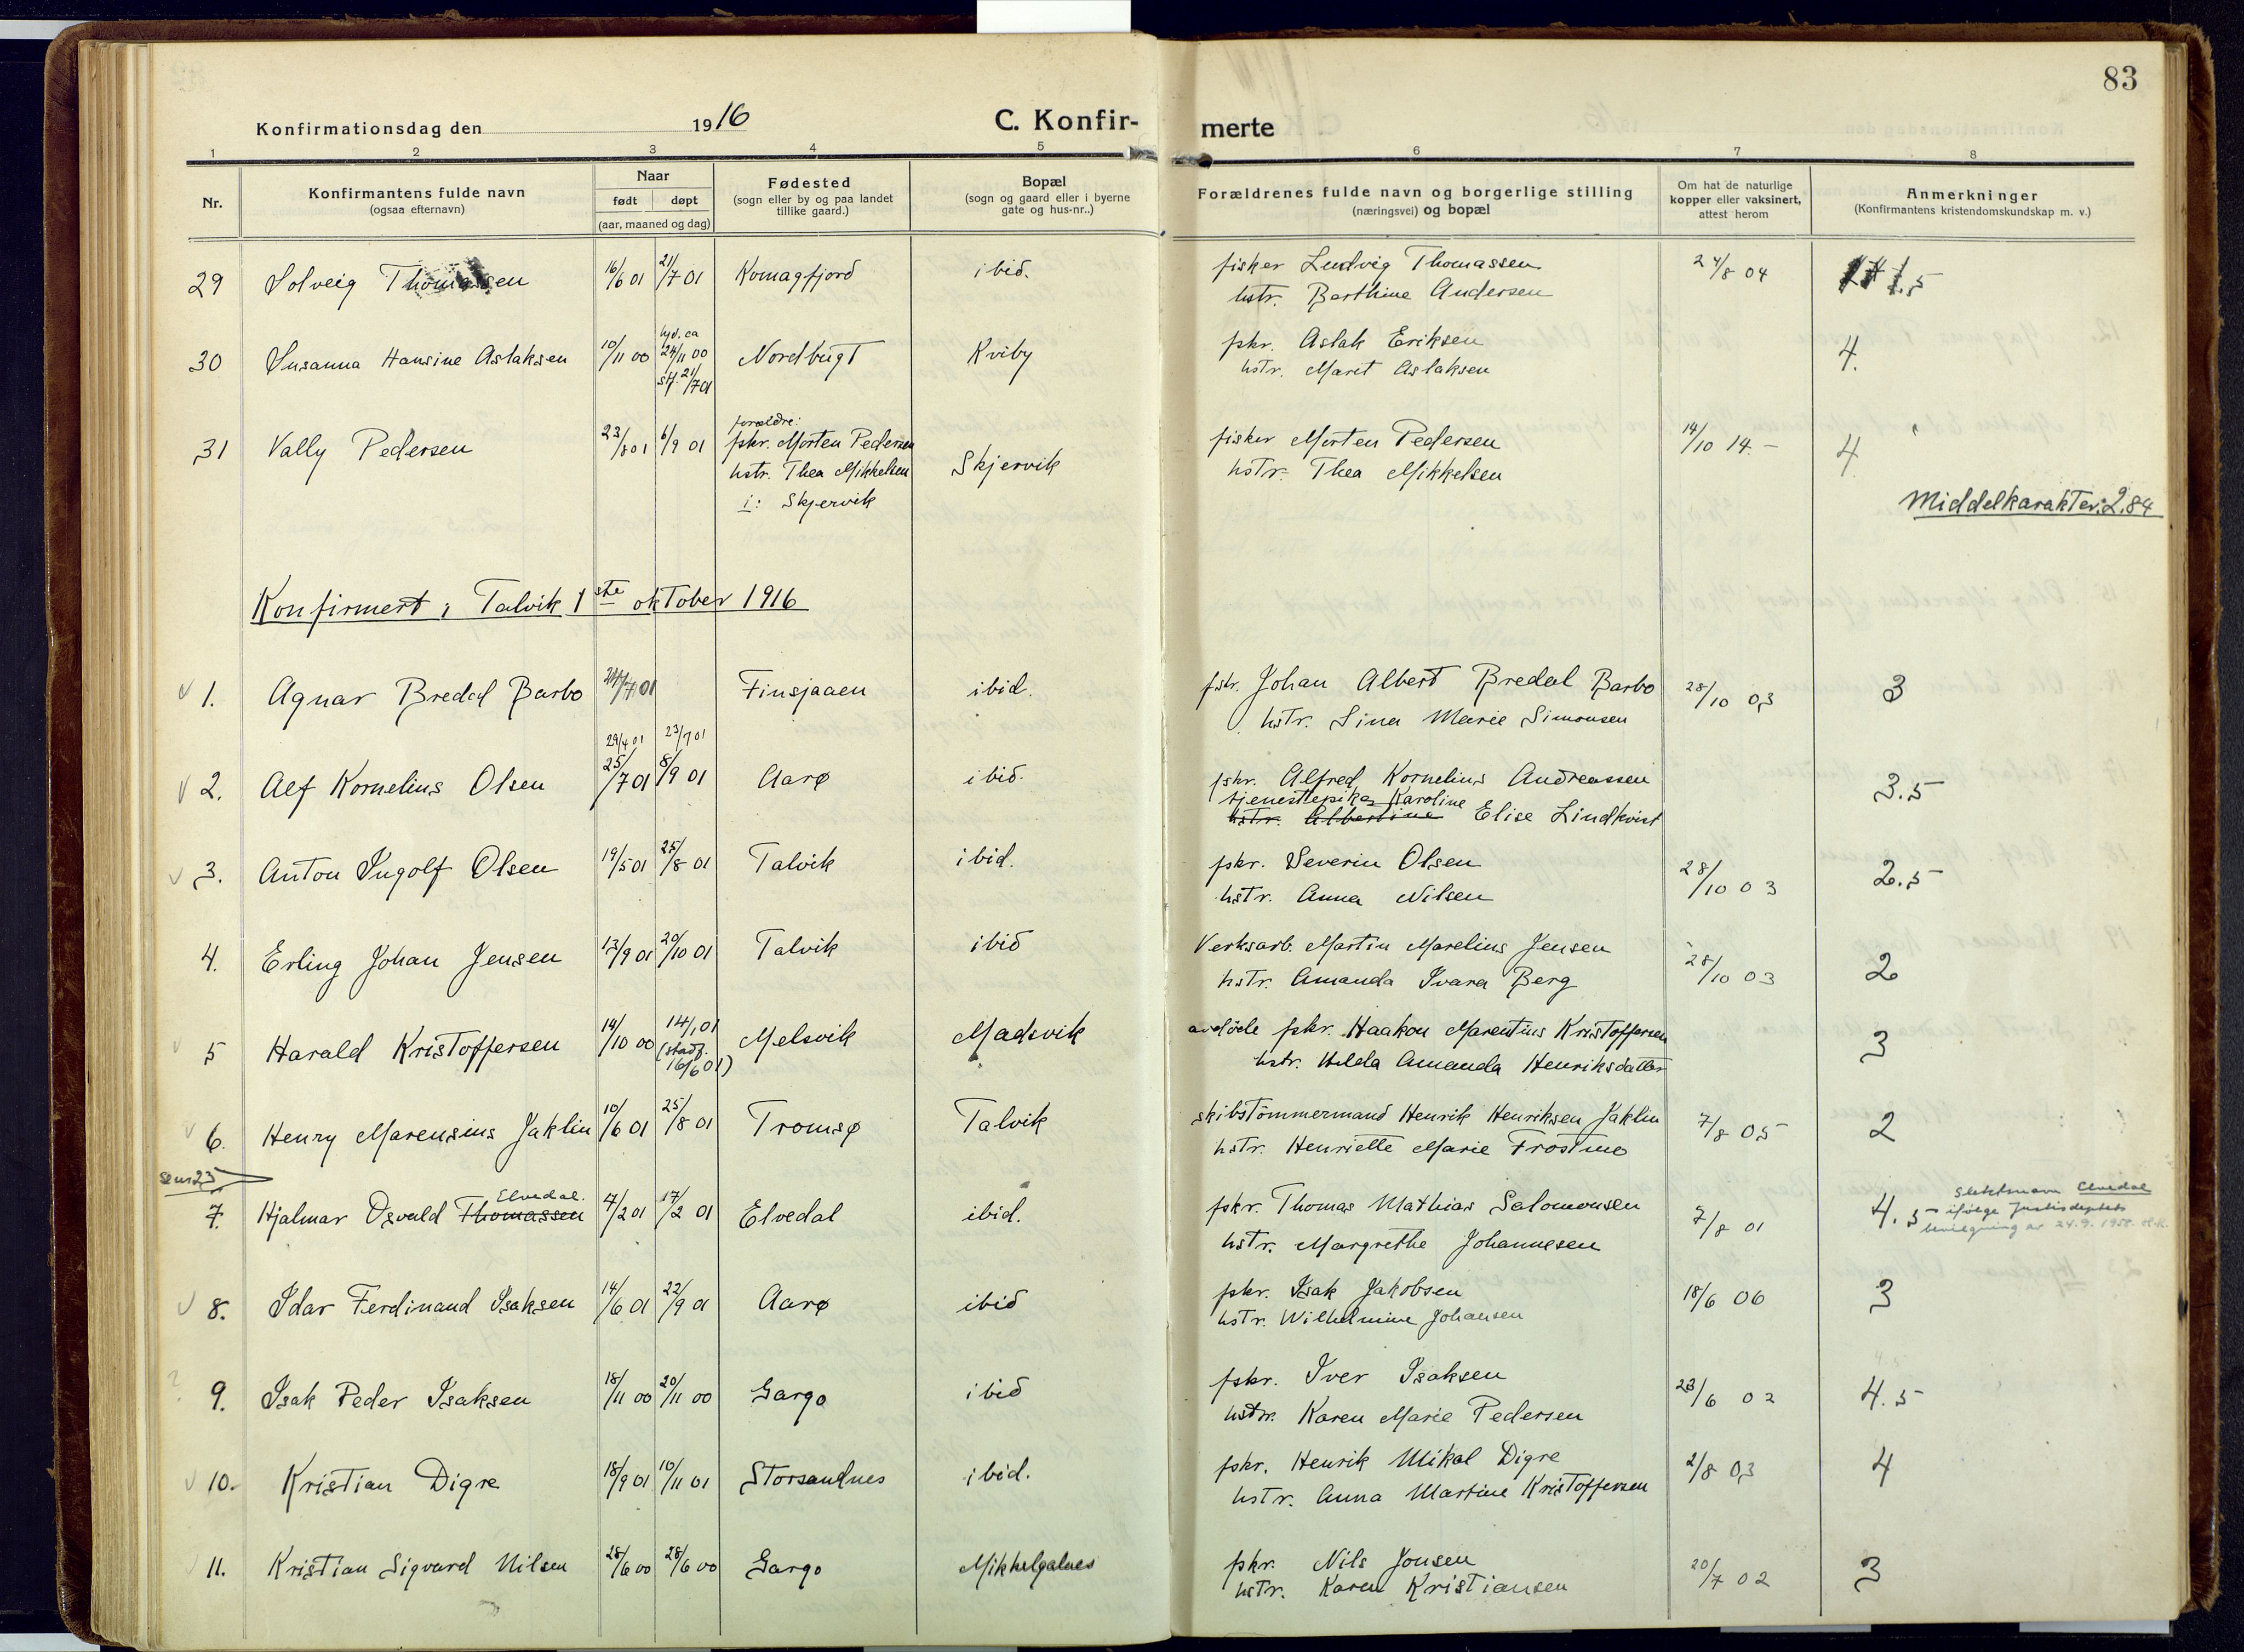 83
Konfirmationsdag den 1916 C. Konfir-
merte
1 2 3 4 5 6 7 8
Nr.
Konfirmantens fulde navn
(ogsaa efternavn)
Naar
født døpt
(aar, maaned og dag)
Fødested
(sogn eller by og paa landet
tillike gaard.)
Bopæl
(sogn og gaard eller i byerne
gate og hus-nr..)
Forældrenes fulde navn og borgerlige stilling
(næringsvei) og bopæl
Om hat de naturlige
kopper eller vaksinert,
attest herom
Anmerkninger
(Konfirmantens kristendomskundskap m. v.)
29 Solveig Thomassen 16/6 01 21/7 01 Komagfjord ibid. fisker Ludvig Thomassen 24/8 04 1.5
hstr. Berthine Andersen
30 Susanna Hansine Aslaksen 10/11 00 hjd. ca 24/11 00 st. 21/7 01 Nordbugt Kviby fskr. Aslak Eriksen 4.
hstr. Marit Aslaksen
31 Vally Pedersen 23/8 01 6/9 01 forældre: fisker Morten Pedersen 14/10 14.- 4
fskr. Morten Pedersen
hstr. Thea Mikkelsen Skjervik hstr. Thea Mikkelsen
i: Skjervik
Middelkarakter: 2.84
Konfirmert i Talvik 1ste oktober 1916
1. Agnar Bredal Barbo Finsjaaen ibid. fskr. Johan Albert Bredal Barbo 28/10 03 3
hstr. Lina Marie Simonsen
29/4 01 23/7 01
2. Alf Kornelius Olsen 25/7 01 8/9 01 Aarø ibid. fskr. Alfred Kornelius Andreassen 3.5
tjenestepike Karoline
hstr. Albertine Elise Lindkvist
3. Anton Ingolf Olsen 19/5 01 25/8 01 Talvik ibid. fskr. Severin Olsen 28/10 03 2.5
hstr. Anna Nilsen
4. Erling Johan Jensen 13/9 01 20/10 01 Talvik ibid Verksarb. Martin Marelius Jensen 28/10 03 2
hstr. Amanda Ivara Berg
5 Harald Kristoffersen 14/10 00 14/1 01 (stadf. 16/6 01) Melsvik Madsvik avdöde fskr. Haakon Marentius Kristoffersen 3
hstr. Hilda Amanda Henriksdatter
6. Henry Marensius Jaklin 10/6 01 25/8 01 Tromsø Talvik skibstömmermand Henrik Henriksen Jaklin 7/8 05 2
hstr. Henriette Marie Frostmo
Elvedal.
7. Hjalmar Osvald Thomassen 4/2 01 17/2 01 Elvedal ibid. fskr. Thomas Mathias Salomonsen 7/8 01 4.5
hstr. Margrethe Johannesen
Slektsnavn Elvedal
ifølge Justisdeptets
bevilgning av 24.9.1958.
8. Idar Ferdinand Isaksen 14/6 01 22/9 01 Aarø ibid fskr. Isak Jakobsen 18/6 06 3
hstr. Wilhelmine Johansen
9. Isak Peder Isaksen 18/11 00 20/11 00 Gargo ibid fskr. Iver Isaksen 23/6 02 4.5
hstr. Karen Marie Pedersen
10. Kristian Digre 18/9 01 10/11 01 Storsandnes ibid. fskr. Henrik Mikal Digre 2/8 03 4
hstr. Anna Martine Kristoffersen
11. Kristian Sigvard Nilsen 28/6 00 28/6 00 Gargo Mikkelgalnes fskr. Nils Jonsen 20/7 02 3
hstr. Karen Kristiansen